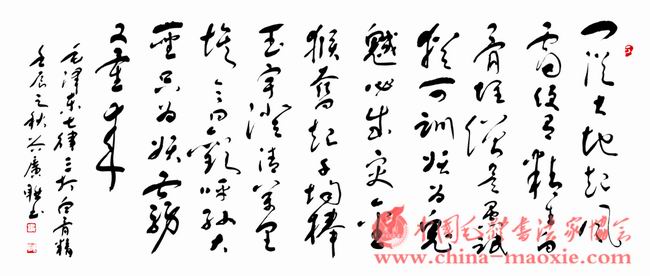 一從大地起風
雷便有精生白
骨堆僧是愚氓
猶可訓妖為鬼
蜮必成災金
猴奮起千鈞棒
玉宇澄清萬里
埃今日歡呼孫大
聖只為妖霧
又重來
毛澤東七律三打白骨精
壬辰之秋 廣 書
中国毛体书法家协会
www.china-maoxie.com